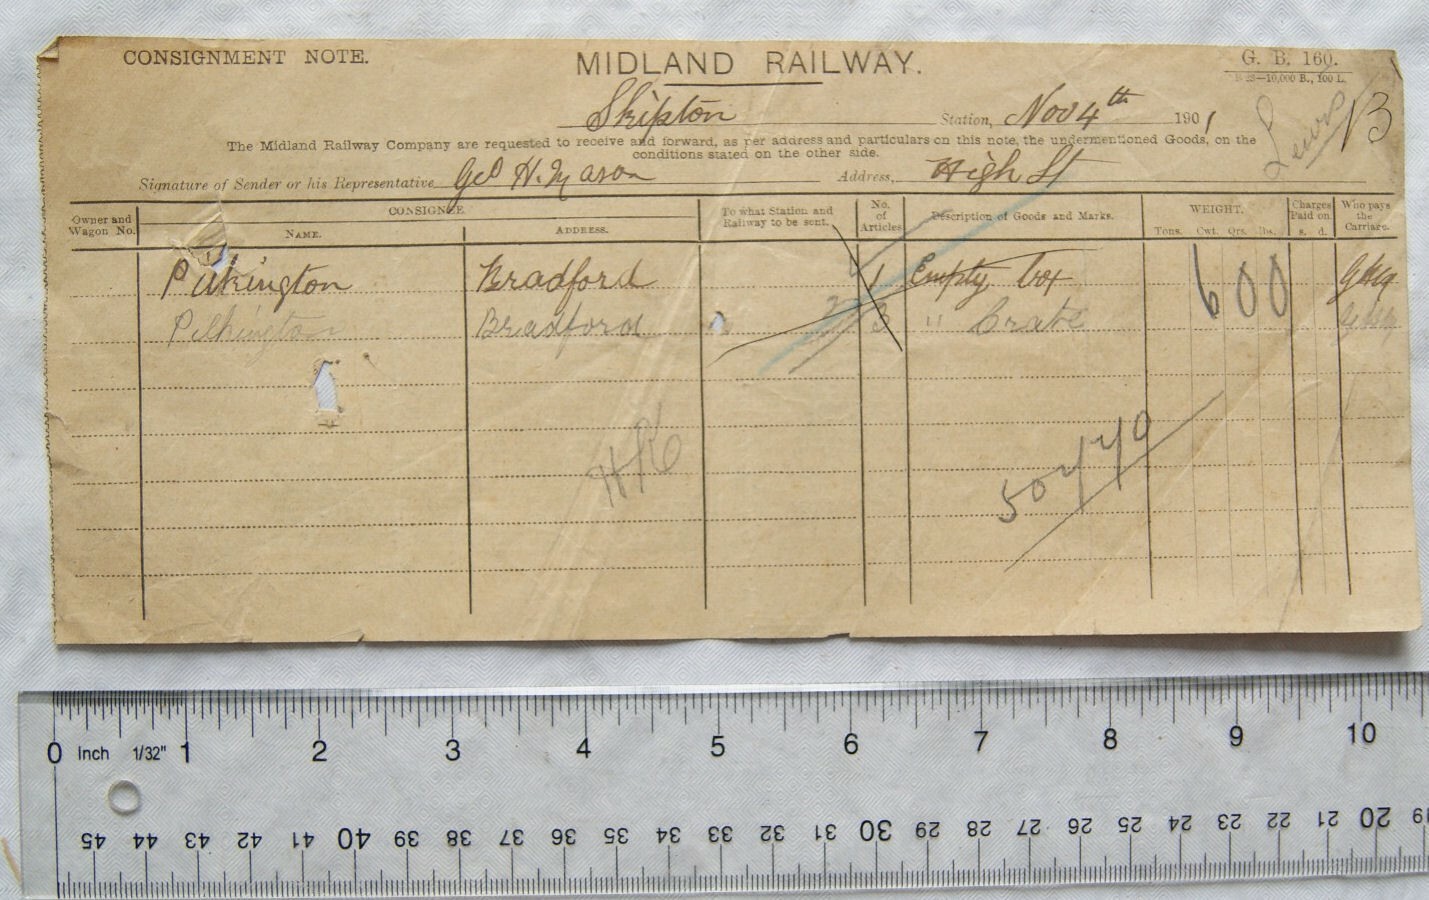 CONSIGNMENT NOTE.
MIDLAND RAILWAY.
G. B. 160.
Skipton Station, Nov 4th 1901
B 23—10,000 B., 100 L.
The Midland Railway Company are requested to receive and forward, as per address and particulars on this note, the undermentioned Goods, on the
conditions stated on the other side.
Signature of Sender or his Representative Geo H. Mason Address, High St
Owner and Wagon No.
CONSIGNEE.
NAME.
ADDRESS.
To what Station and Railway to be sent.
No. of Articles
Description of Goods and Marks.
WEIGHT.
Tons. Cwt. Qrs. lbs.
Charges Paid on
s. d.
Who pays the Carriage.
Pilkington Bradford 1 Empty box 6 0 0
Pilkington Bradford 2 3 " Crate
HR
50770
0 Inch 1/32" 1 2 3 4 5 6 7 8 9 10
45 44 43 42 41 40 39 38 37 36 35 34 33 32 31 30 29 28 27 26 25 24 23 22 21 20 19